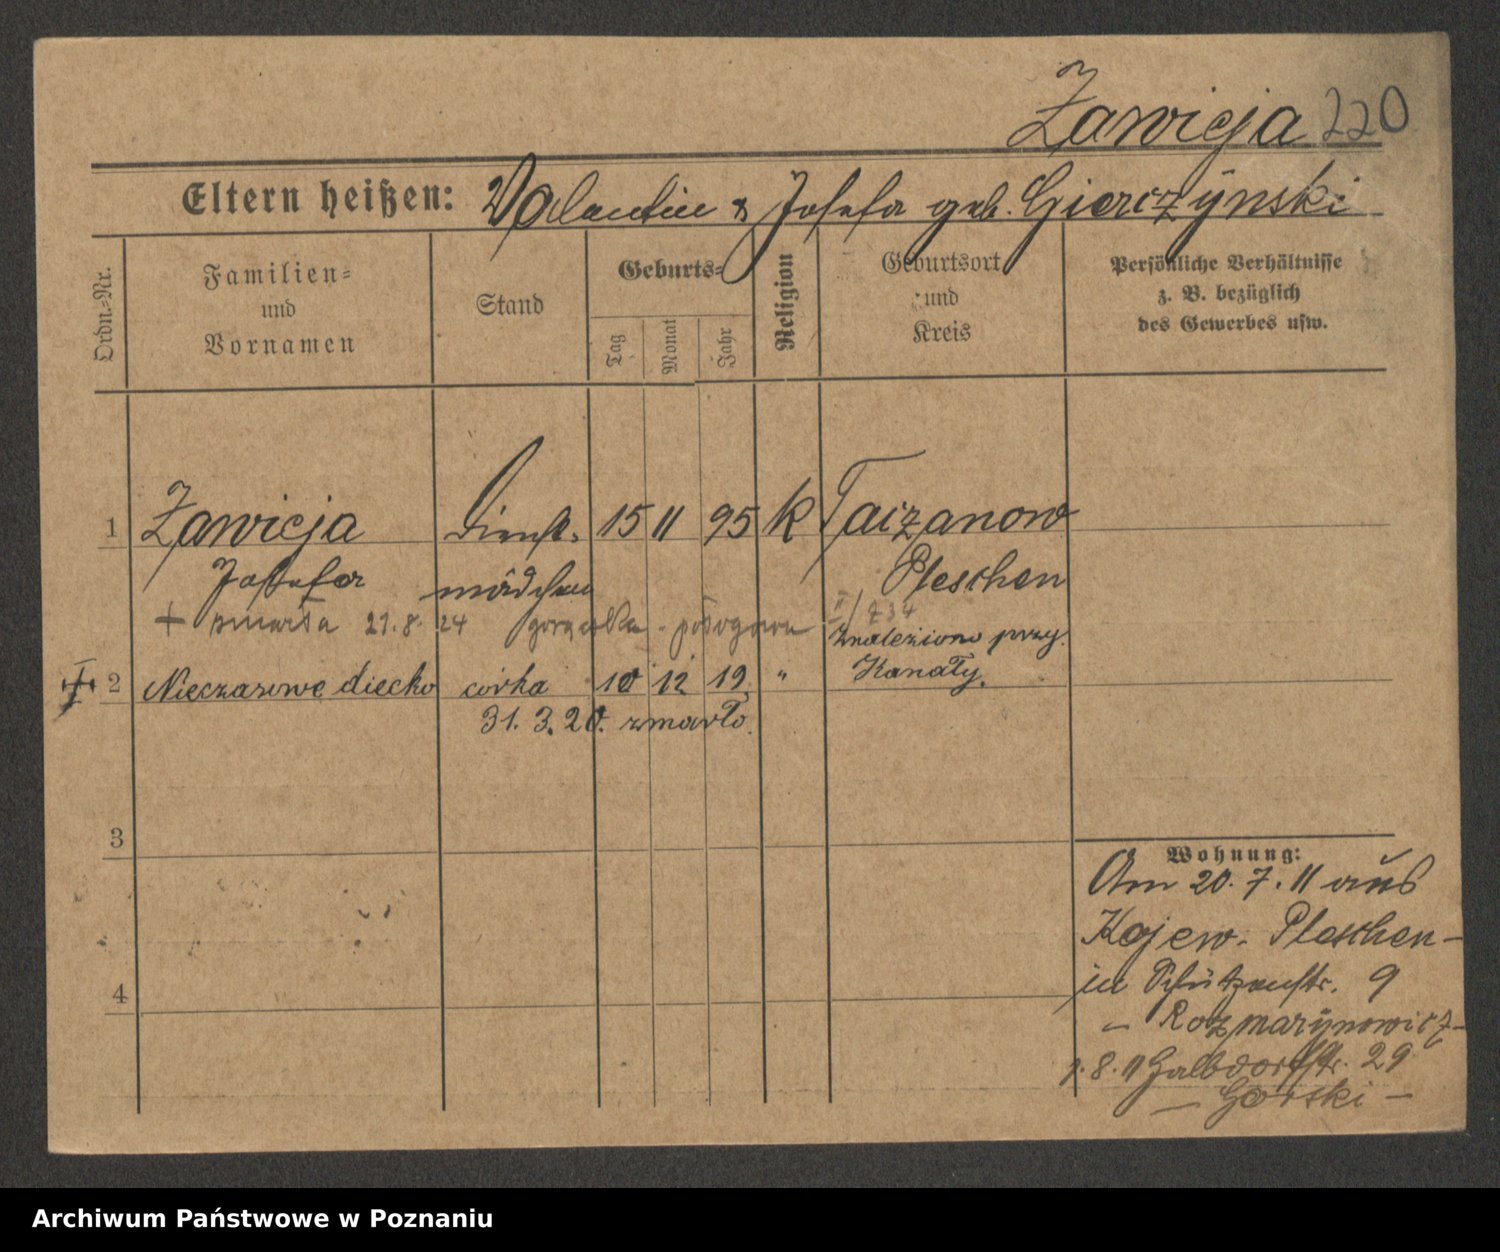 Zawieja 220
Eltern heißen: Valentin & Josefa geb. Gierczÿnski
Ordn.-Nr.
Familien-
und
Vornamen
Stand
Geburts-
Tag
Monat
Jahr
Religion
Geburtsort
und
Kreis
Persönliche Verhältnisse
z. B. bezüglich
des Gewerbes usw.
1 Zawieja Dienst- 15 11 95 k Taczanow
Josefa mädchen Pleschen
+ zmarła 21.8.24 gorączka - połogowa II/734
znaleziono przy
2 Nieczasowe diecko córka 10 12 19 " Kanały.
31. 3. 20. zmarło.
3
4
Wohnung:
Am 20. 7. 11 aus
Kajew. Pleschen -
in Schützenstr. 9
- Rozmarÿnowicz -
1. 8. 11 Halbdorfstr. 29
- Gorski -
Archiwum Państwowe w Poznaniu